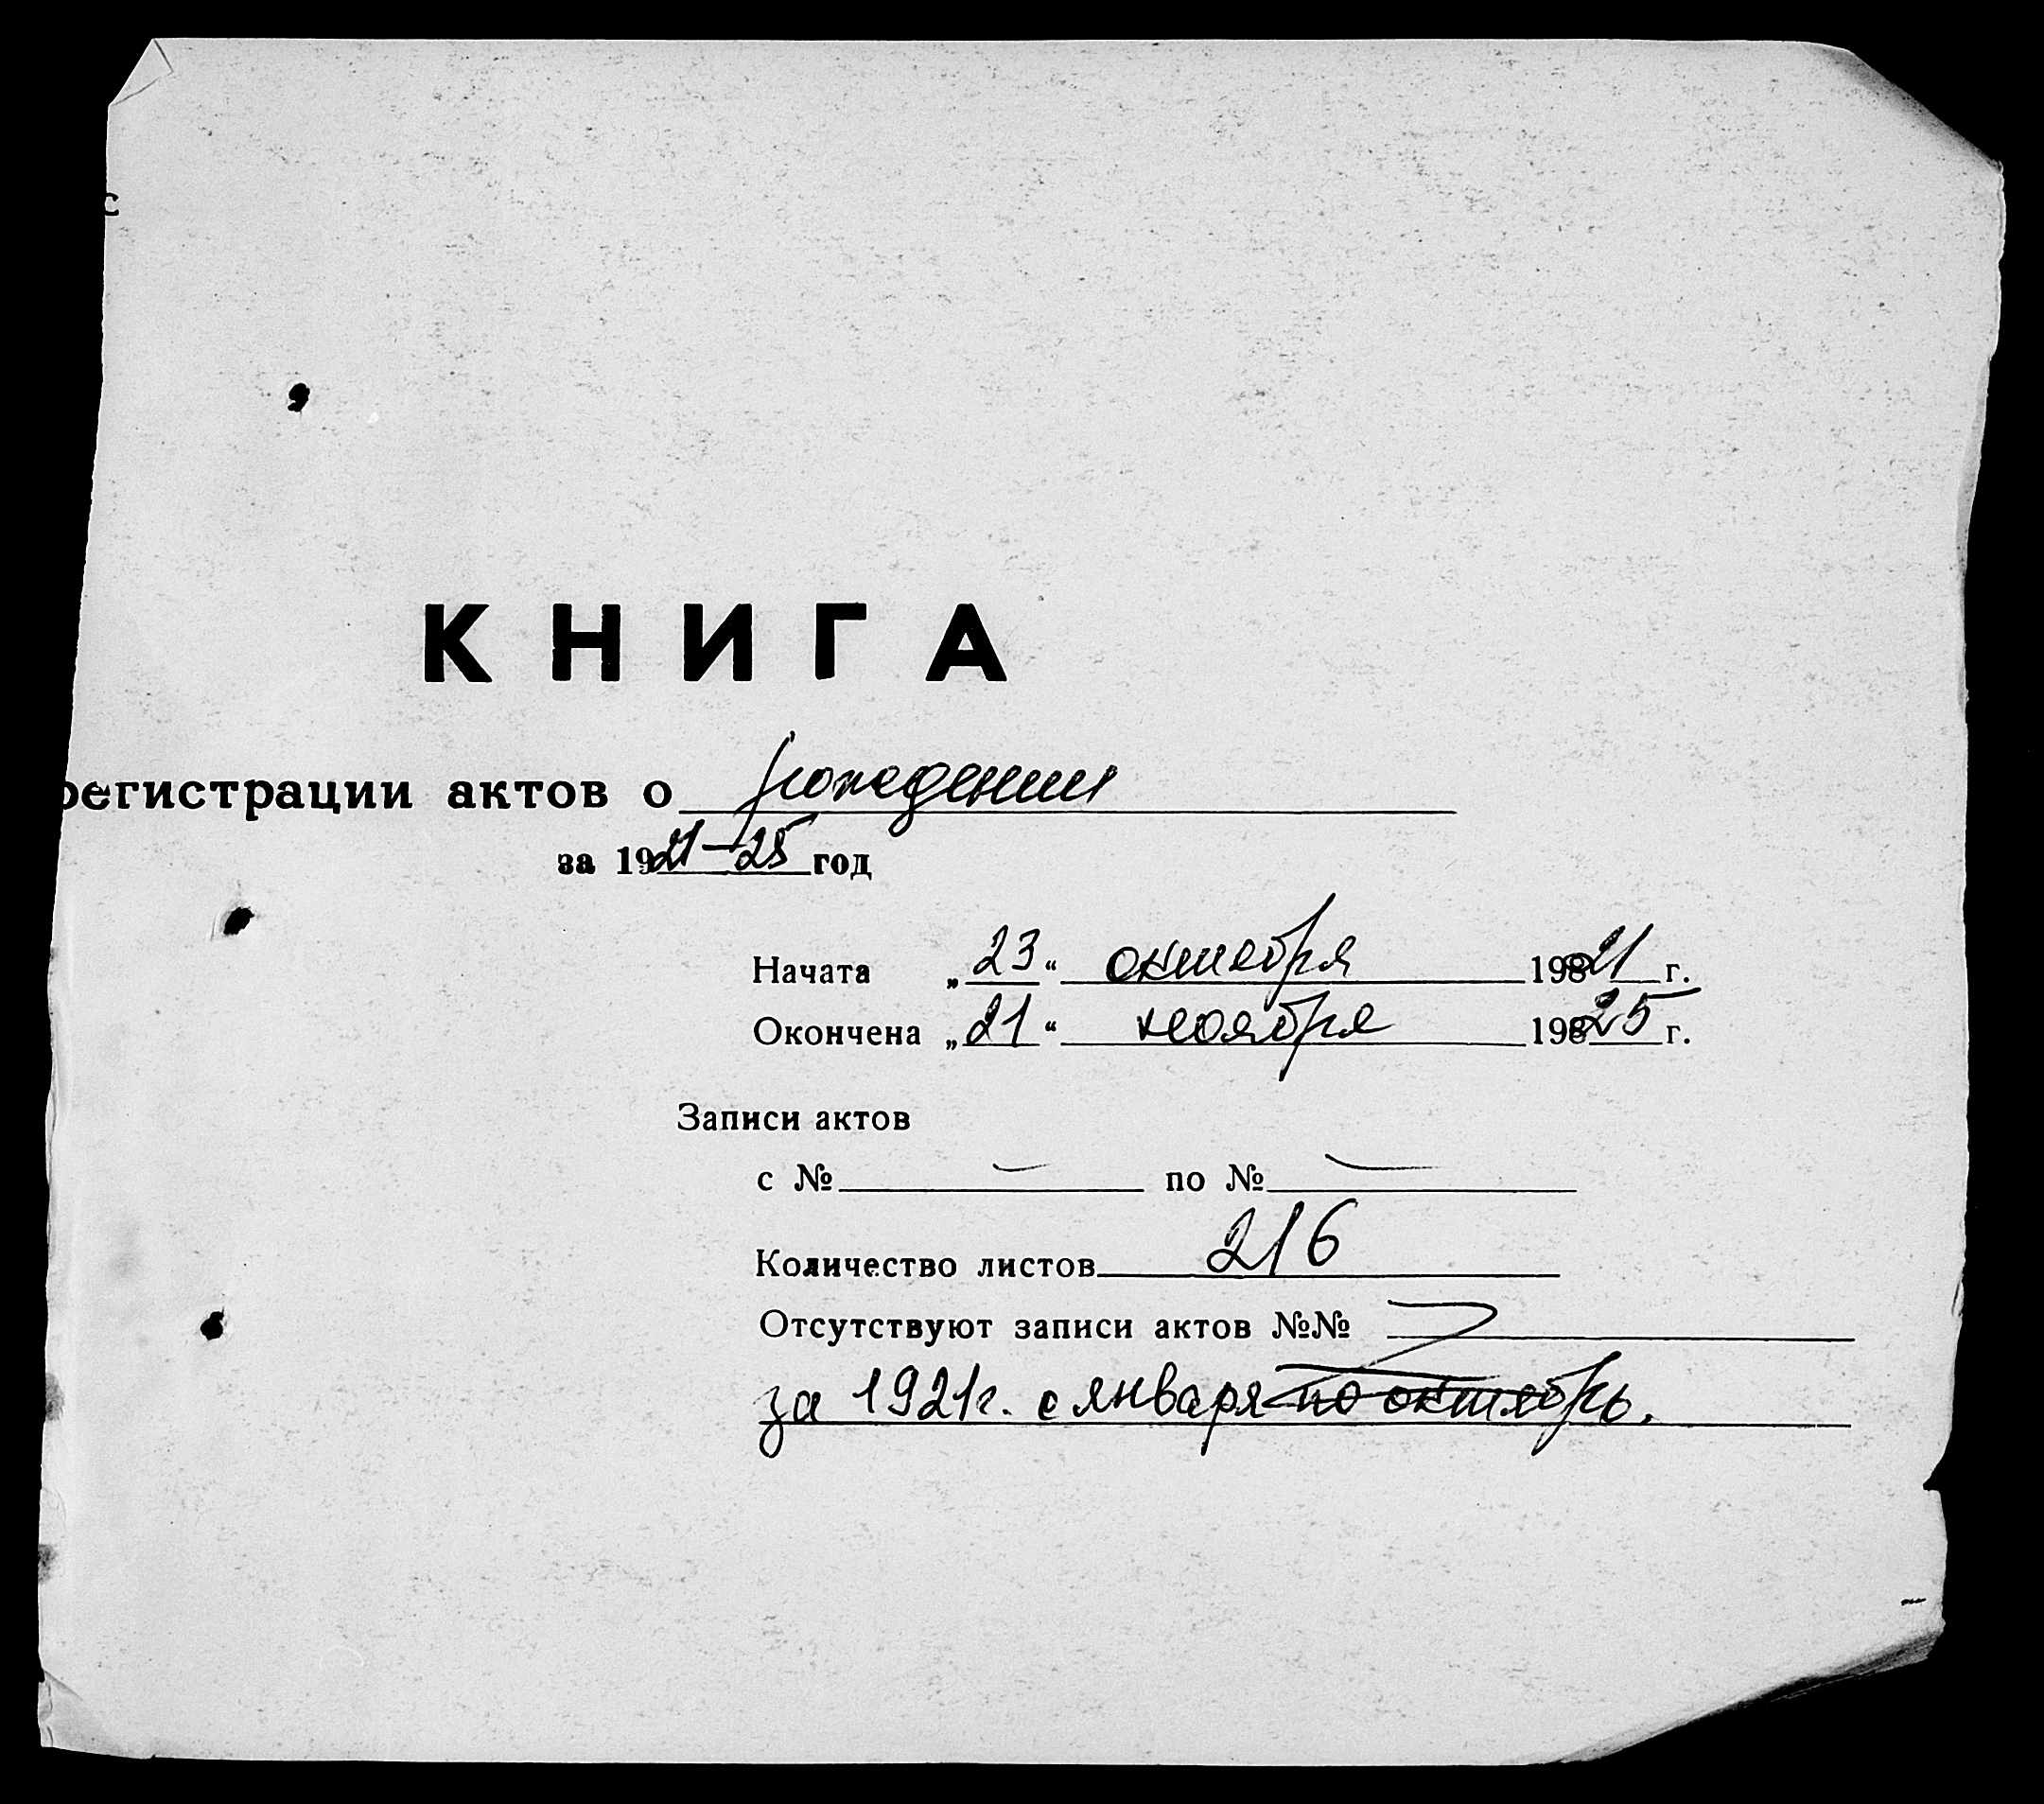 с
КНИГА
регистрации актов о рождении
за 1921-25 год
Начата „23“ октября 19821 г.
Окончена „21“ ноября 19825 г.
Записи актов
с № — по № —
Количество листов 216
Отсутствуют записи актов №№
за 1921г. с января по октябрь.